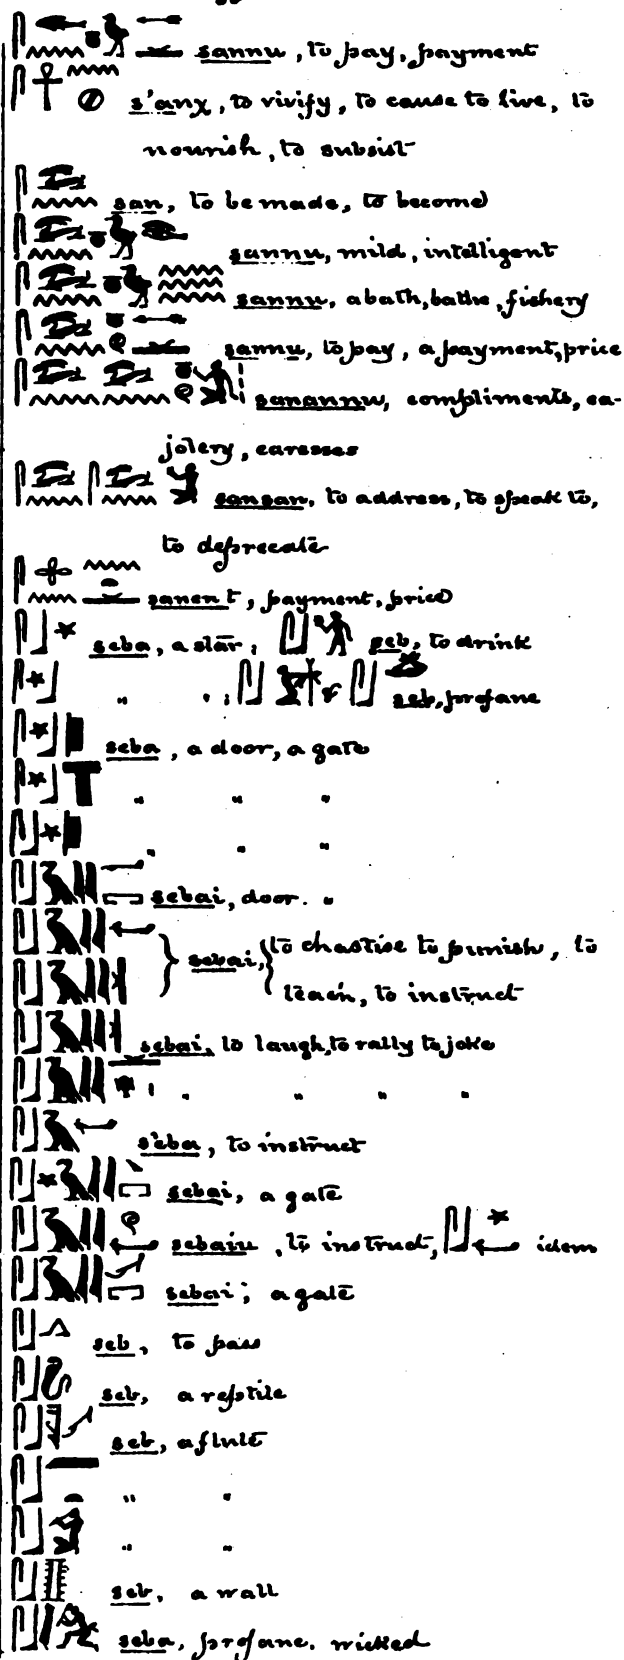 sannu, to pay, payment
s'anχ, to vivify, to cause to live, to
nourish, to subsist
san, to be made, to become
sannu, mild, intelligent
sannu, a bath, bathe, fishery
sannu, to pay, a payment, price
sanannu, compliments, ca-
jolery, caresses
sansan, to address, to speak to,
to deprecate
sanent, payment, price
seba, a star; seb, to drink
" " ; seb, profane
seba, a door, a gate
" " "
" " "
sebai, door. "
sebai, to chastise to punish, to
teach, to instruct
sebai, to laugh, to rally to joke
" " " "
s'eba, to instruct
sebai, a gate
sebaiu, to instruct, idem
sebai; a gate
seb, to pass
seb, a reptile
seb, a flute
" "
" "
seb, a wall
seba, profane. wicked